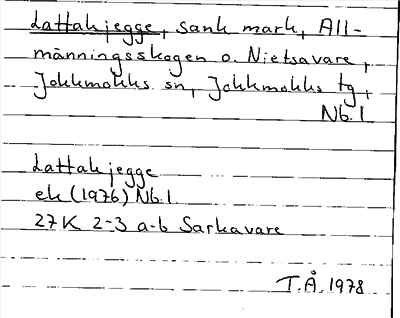 Lattakjegge, sank mark, All-
männingsskogen o. Nietsavare,
Jokkmokks sn, Jokkmokks tg,
Nb.l
Lattakjegge
ek (1976) Nb.l
27K 2-3 a-b Sarkavare
T.Å. 1978